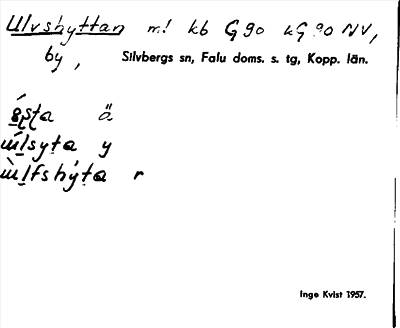 Ulvshyttan m! kb G 90 kG 90 NV,
by, Silvbergs sn, Falu doms. s. tg, Kopp. län.
ä
y
r
Inge Kvist 1957.